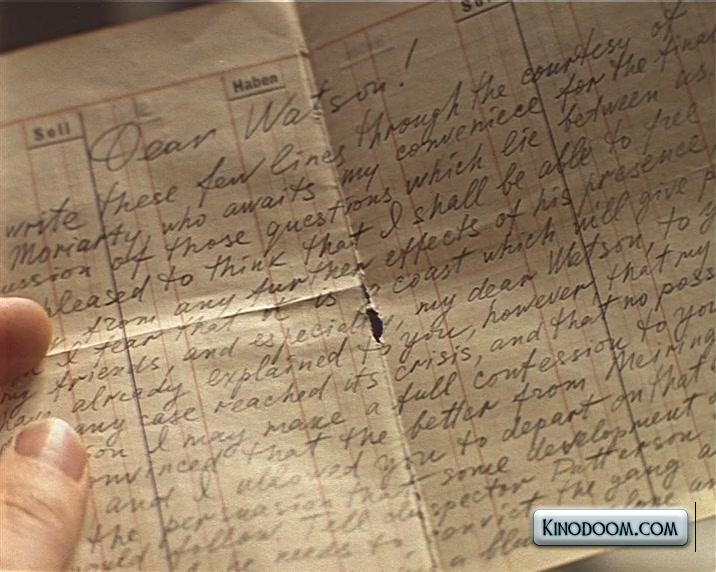 Soll
Haben
Soll
Dear Watson!
write these few lines through the courtesy of
Moriarty who awaits my conveniece for the final
ussion of those questions which lie between us.
pleased to think that I shall be able to free
from any further effects of his presence
I fear that it is coast which will give p
ny friends, and especially, my dear Watson, to y
have already explained to you, however, that my
any case reached its crisis, and that no poss
on I may make a full confession to you
onvinced that the better from Meiring
and I allowed you to depart on that
the persuasion that some development
follow. Tell Inspector Patterson
he needs to convict the gang a
a blue
KINODOOM.COM